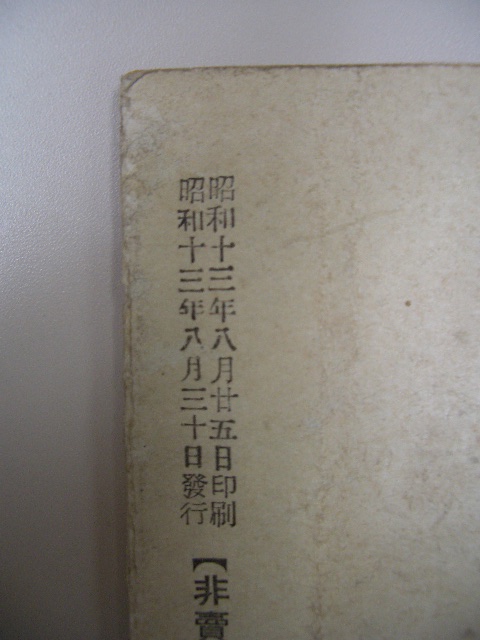 昭和十三年八月廿五日印刷
昭和十三年八月三十日發行
【非賣